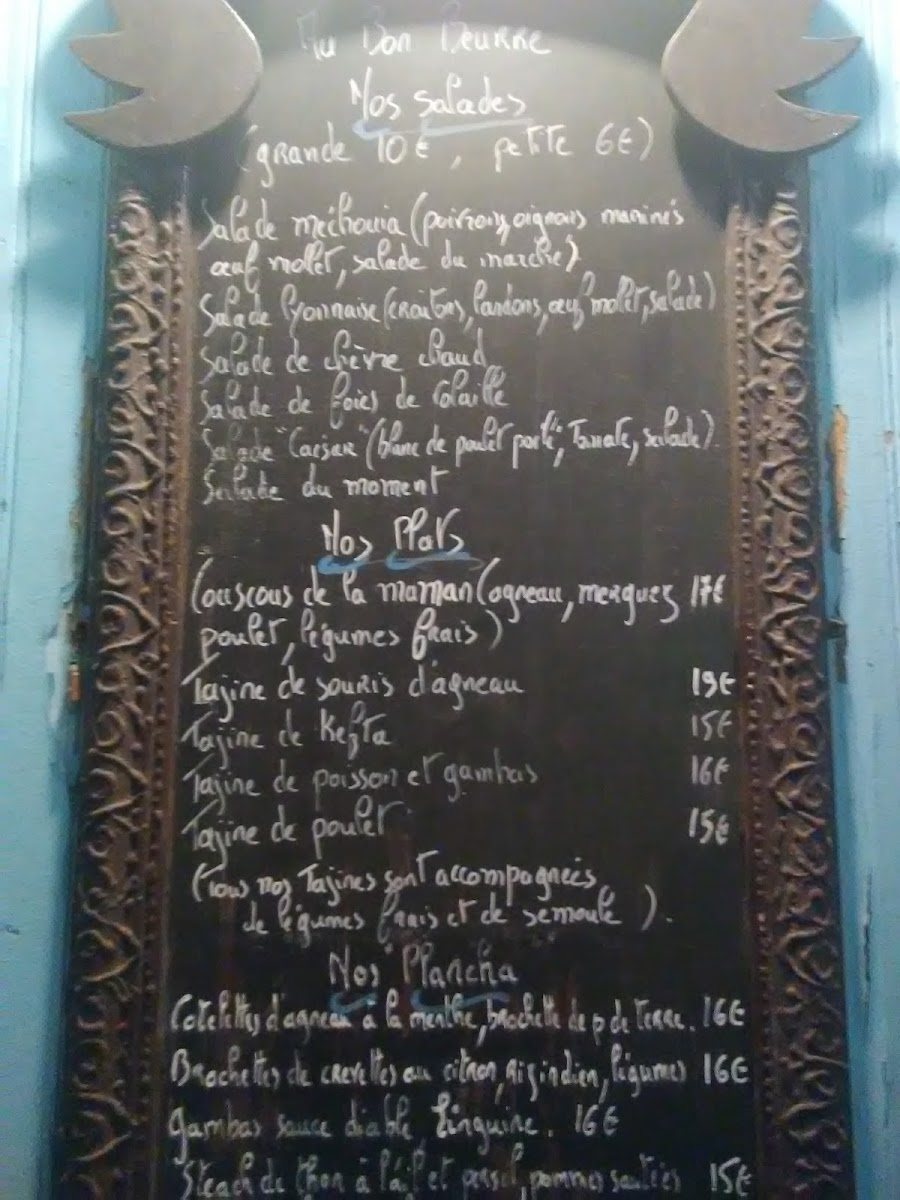 Au Bon Beurre
Nos salades
(grande 10€, petite 6€)
Salade méchouia (poivrons, oignons marinés
œuf mollet, salade du marché)
Salade lyonnaise (croûtons, lardons, œuf mollet, salade)
Salade de chèvre chaud
Salade de foies de volaille
Salade "Caesar" (blanc de poulet pané, Tomate, salade).
Salade du moment
Nos Plats
Couscous de la maman (agneau, merguez 17€
poulet, légumes frais)
Tajine de souris d'agneau 19€
Tajine de Kefta 15€
Tajine de poisson et gambas 16€
Tajine de poulet 15€
(Tous nos Tajines sont accompagnées
de légumes frais et de semoule).
Nos Plancha
Cotelettes d'agneau à la menthe, brochette de p de terre. 16€
Brochettes de crevettes au citron, riz indien, légumes 16€
Gambas sauce diable, linguine. 16€
Steack de thon à l'ail et persil, pommes sautées 15€